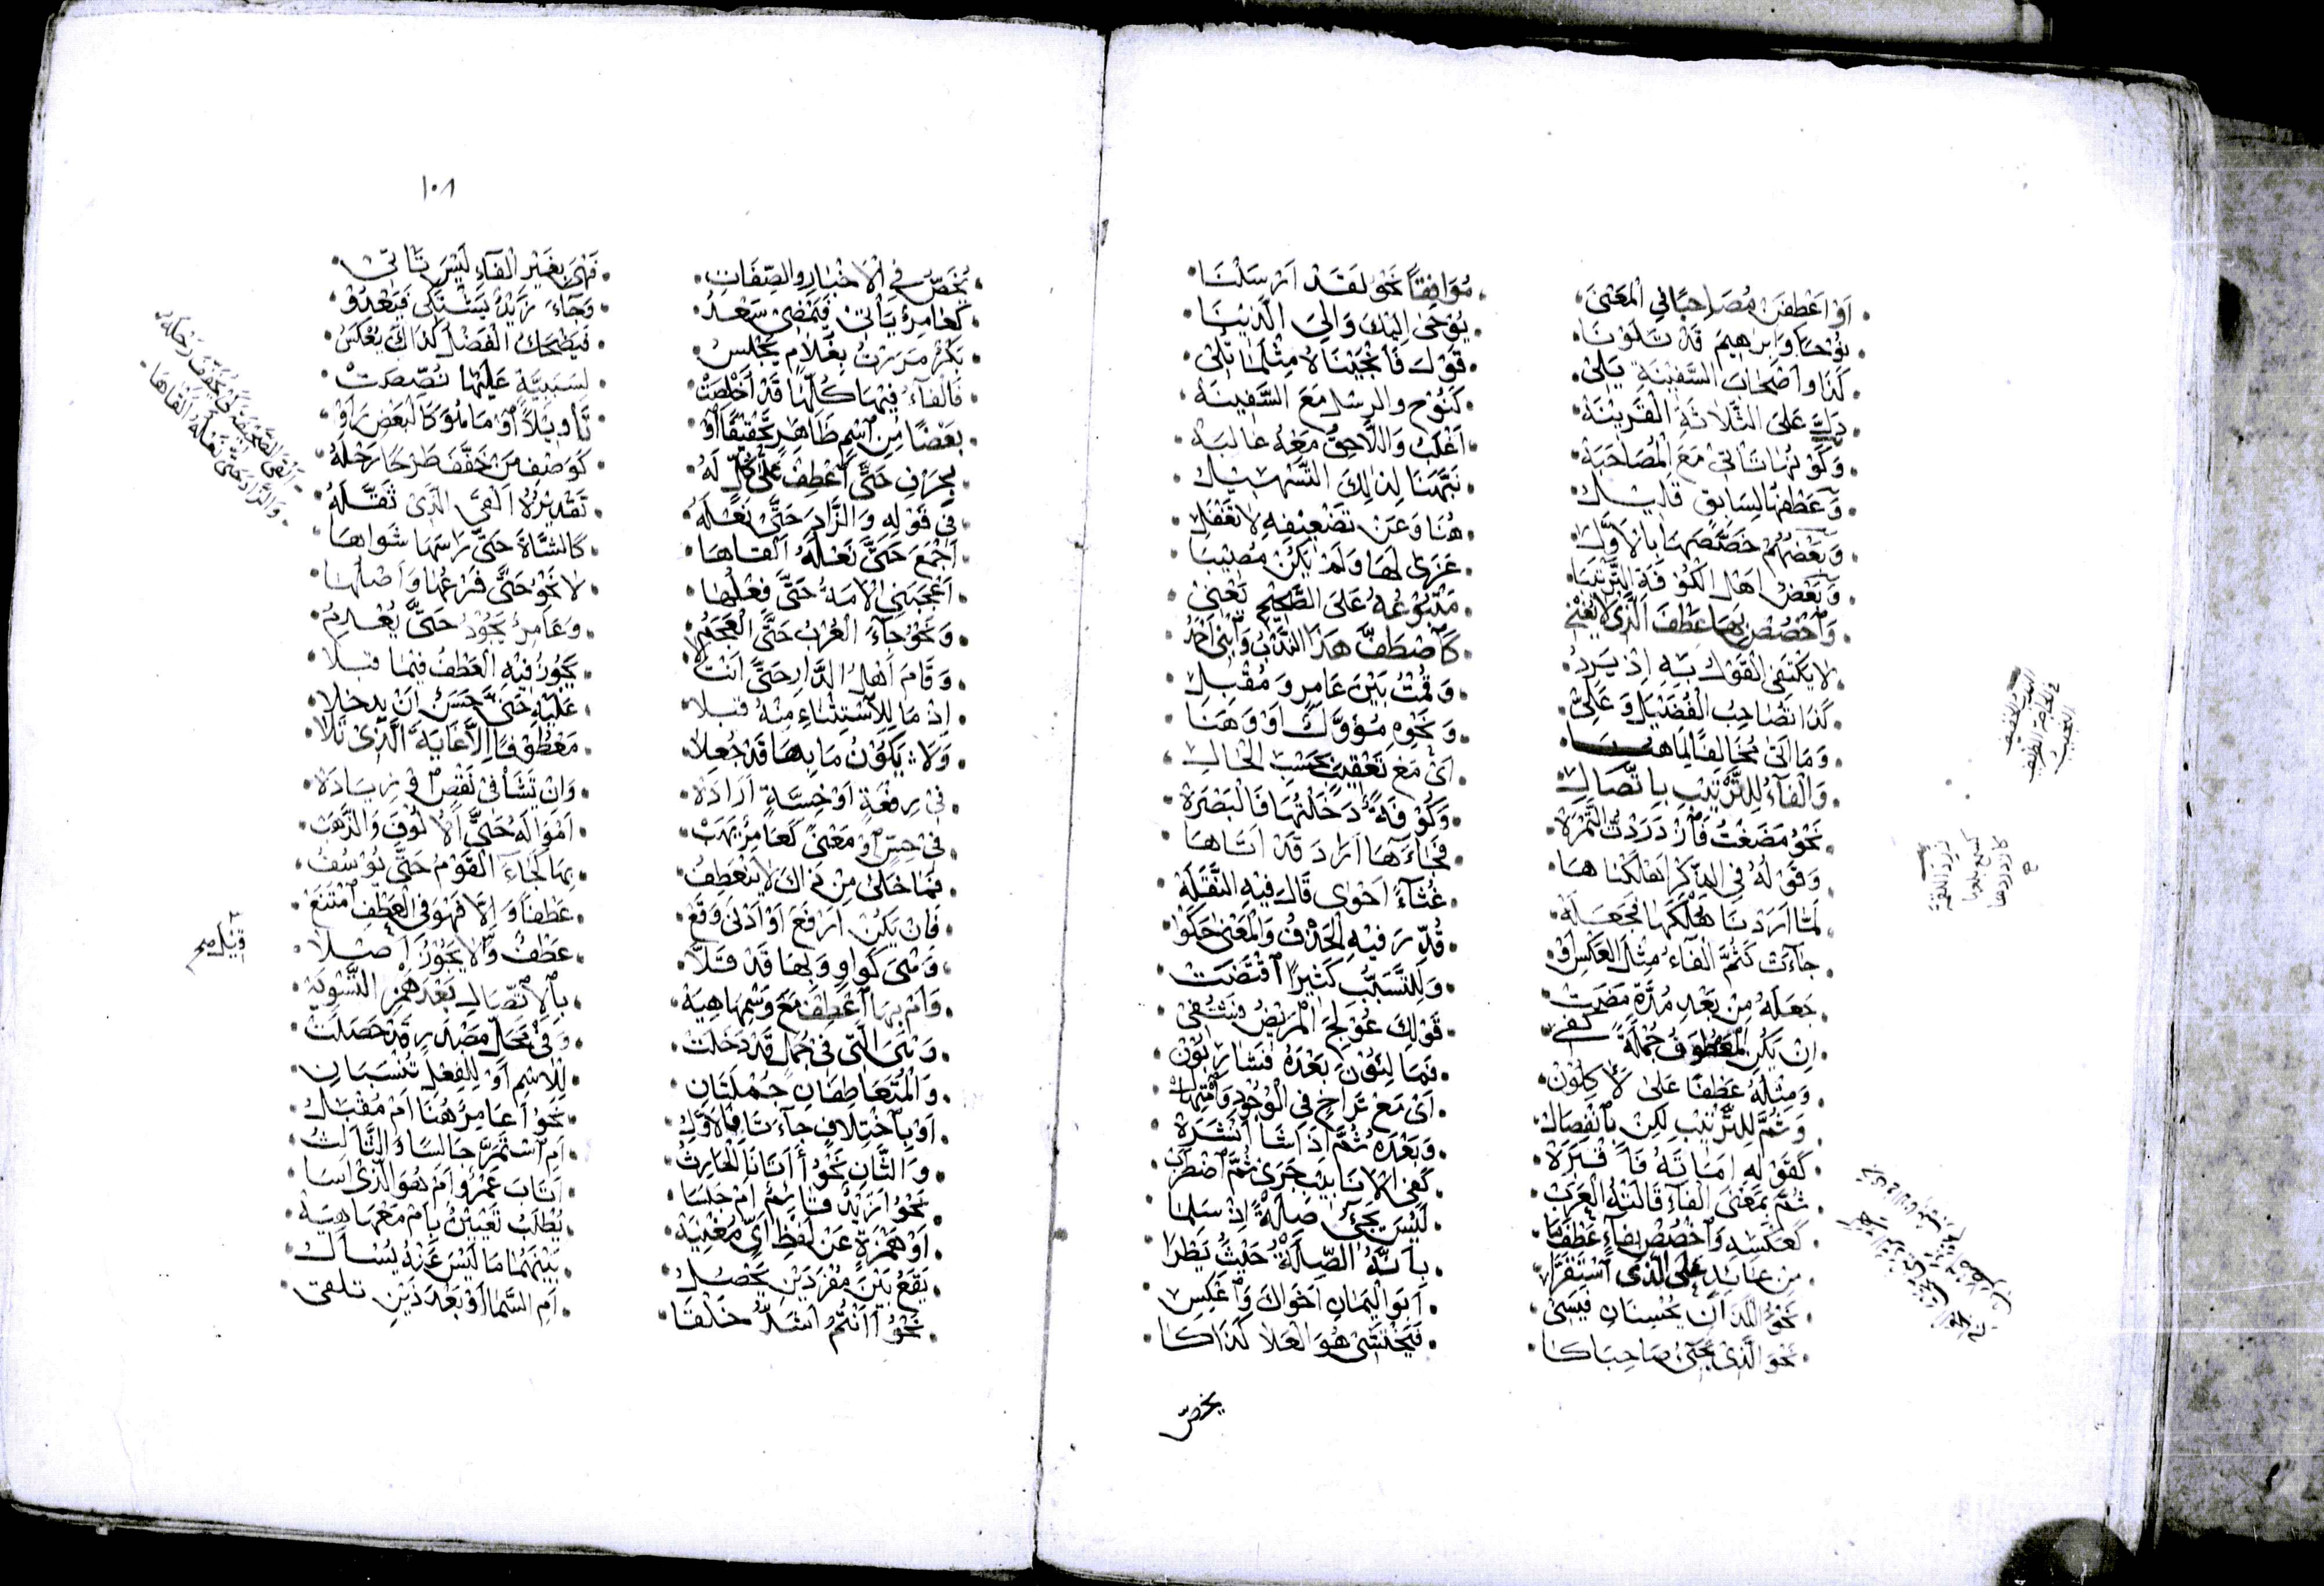 أَوْ اعْطِفَنْ مُصَاحِبًا فِي الْمَعْنَى مُوَافِقًا نَحْوُ لَقَدْ أَرْسَلْنَا
نُوْحًا وَإِبْرَاهِيمَ قَدْ تَلَوْنَا يُوْحَى إِلَيْكَ وَإِلَى الَّذِيْنَا
كَذَا وَأَصْحَابَ السَّفِيْنَةِ يَلِى قَوْلَ فَأَنْجَيْنَاهُ مِثْلَمَا تُلِيْ
دَلَّ عَلَى الثَّلَاثَةِ الْقَرِيْنَهْ كَنُوْحٍ وَالرُّسْلِ مَعَ السَّفِيْنَهْ
وَكَوْنُهَا تَأْتِيْ مَعَ الْمُصَاحَبَهْ أَغْلَبُ وَاللَّاحِقُ مَعْهُ غَالِبَهْ
وَعَطْفُهَا لِسَابِقٍ قَلِيْلُ نَبَّهَنَا لِذَلِكَ التَّسْهِيْلُ
وَبَعْضُهُمْ خَصَّصَهَا بِالْأَوَّلِ هُنَا وَعَنْ تَضْعِيْفِهِ لَا تَغْفُلِ
وَبَعْضُ أَهْلِ الْكُوْفَةِ التَّرْتِيْبَا عَزَى لَهَا وَلَمْ يَكُنْ مُصِيْبَا
وَاخْصُصْ بِهَا عَطْفَ الَّذِيْ لَا يُغْنِيْ مَتْبُوْعُهُ عَلَى الصَّحِيْحِ يَعْنِيْ
لَا يَكْتَفِى الْقَوْلُ بِهِ إِذْ يَرِدُ كَاصْطَفَّ هَذَا النَّدْبُ وَابْنِيْ أَحْمَدُ
كَذَا تَصَاحِبُ الْفُضَيْلُ وَعَلِيْ وَقُمْتُ بَيْنَ عَامِرٍ وَمُقْبِلِ
وَمَا أَتَى مُخَالِفًا لِمَا هُنَا وَنَحْوِهِ مُؤَوَّلٌ أَوْ وَهَنَا
وَالْفَاءُ لِلتَّرْتِيْبِ بِاتِّصَالِ أَيْ مَعَ تَعْقِيْبٍ بِحَسْبِ الْحَالِ
نَحْوُ مَضَغْتُ فَازْدَرَدْتُ التَّمْرَهْ وَكُوْفَةً دَخَلْتُهَا فَالْبَصْرَهْ
وَقَوْلُهُ فِي الذِّكْرِ أَهْلَكْنَاهَا فَجَاءَهَا أَرَادَ قَدْ أَتَاهَا
لَمَّا أَرَدْنَا هُلْكَهَا فَجَعَلَهْ غُثَاءً أَحْوَى قَالَ فِيْهِ النَّقَلَهْ
جَاءَتْ كَثُمَّ الْفَاءُ مِثْلَ الْعَكْسِ أَوْ قُدِّرَ فِيْهِ الْحَذْفُ وَالْمَعْنَى حَكَوْا
جَعَلَهُ مِنْ بَعْدِ مُدَّةٍ مَضَتْ وَلِلتَّسَبُّبِ كَثِيْرًا اقْتَضَتْ
إِنْ يَكُنِ الْمَعْطُوفُ جُمْلَةً كَفِيْ قَوْلِكَ عُوْلِجَ الْمَرِيْضُ فَشُفِيْ
وَمِثْلُهُ عَطْفًا عَلَى لَآكِلُوْنْ فَمَالِئُوْنَ بَعْدَهُ فَشَارِبُوْنْ
وَثُمَّ لِلتَّرْتِيْبِ لَكِنْ بِانْفِصَالْ أَيْ مَعْ تَرَاخٍ فِي الْوُجُوْدِ وَامْتِهَالْ
كَقَوْلِهِ أَمَاتَهُ فَأَقْبَرَهْ وَبَعْدَهُ ثُمَّ إِذَا شَا أَنْشَرَهْ
ثُمَّ بِمَعْنَى الْفَاءِ قَالَتْهُ الْعَرَبْ كَفِى الْأَنَابِيْبِ جَرَى ثُمَّ اضْطَرَبْ
كَعَكْسِهِ وَاخْصُصْ بِفَاءٍ عَطْفَ مَا لَيْسَ يَجِئُ صِلَةً إِذْ سَلِمَا
مِنْ عَائِدٍ عَلَى الَّذِي اسْتَقَرَّا بِأَنَّهُ الصِّلَةُ حَيْثُ يُطْرَا
نَحْوُ اللَّذَانِ يُحْسِنَانِ فَيُسِيْ أَبُو الْيَمَانِ أَخَوَاكَ وَاعْكِسِ
نَحْوَ الَّذِيْ يَجِئُ صَاحِبَاكَا فَيَخْتَشِيْ هُوَ الْعَلَا كَذَاكَا
يخص
١٠٨
يُخَصُّ فِي الْأَخْبَارِ وَالصِّفَاتِ فَهْيَ بِغَيْرِ الْفَاءِ لَيْسَ تَاتِيْ
كَعَامِرٌ يَأْتِيْ فَيَمْضِيْ سَعْدُ وَجَاءَ زَيْدٌ يَشْتَكِي فَيَعْدُوْ
بَكْرٌ مَرَرْتُ بِغُلَامٍ يَجْلِسُ فَيَضْحَكُ الْفَضْلُ كَذَاكَ يُعْكَسُ
فَالْفَاءُ فِيْهَا كُلِّهَا قَدْ أُخْلِصَتْ لِسَبَبِيَّةٍ عَلَيْهَا نُصِّصَتْ
بَعْضًا مِنِ اسْمٍ ظَاهِرٍ تَحْقِيْقًا أَوْ تَأْوِيْلًا أَوْ مَا هُوَ كَالْبَعْضِ رَأَوْ
بِحَرْفِ حَتَّى اعْطِفْ عَلَى كُلٍّ لَهُ كَوَصْفِ مَنْ خَفَّفَ طَرْحًا رَحْلَهُ
فِيْ قَوْلِهِ وَالزَّادَ حَتَّى نَعْلَهُ تَقْدِيْرُهُ أَلْقَى الَّذِيْ ثَقَّلَهُ
أَجْمَعَ حَتَّى نَعْلَهُ أَلْقَاهَا كَالشَّاةَ حَتَّى رَاسَهَا شَوَاهَا
أَعْجَبَنِي الْأَمَةُ حَتَّى فِعْلُهَا لَا نَحْوُ حَتَّى فَرْعُهَا وَأَصْلُهَا
وَنَحْوُ جَاءَ الْعُرْبُ حَتَّى الْعَجَمُ وَعَامِرٌ يَجُوْدُ حَتَّى يُعْدِمُ
وَقَامَ أَهْلُ الدَّارِ حَتَّى أَنْتَ لَا يَجُوْزُ فِيْهِ الْعَطْفُ فِيْمَا قَبِلَا
إِذْ مَا لِلِاسْتِثْنَاءِ مِنْهُ قَبِلَا عَلَيْهِ حَتَّى حَسَنٌ أَنْ يَدْخُلَا
وَلَا يَكُوْنُ مَا بِهَا قَدْ جُعِلَا مَعْطُوْفًا إِلَّا غَايَةَ الَّذِيْ تَلَا
فِيْ رِفْعَةٍ أَوْ خِسَّةٍ أَرَادَهْ وَإِنْ تَشَأْ فِيْ نَقْصٍ أَوْ زِيَادَهْ
فِيْ حِسٍّ أَوْ مَعْنًى كَعَامِرٌ يَهَبْ أَمْوَالَهُ حَتَّى الْأُلُوْفَ وَالذَّهَبْ
فَمَا خَلَى مِنْ ذَاكَ لَا يَنْعَطِفُ بِهَا كَجَاءَ الْقَوْمُ حَتَّى يُوْسُفُ
فَإِنْ يَكُنْ أَرْفَعَ أَوْ أَدْنَى وَقَعْ عَطْفًا وَإِلَّا فَهْوَ فِي الْعَطْفِ امْتَنَعْ
عَطْفٌ وَلَا يَجُوْزُ أَصْلَا
وَأَمْ بِهَا اعْطِفْ مَعَ وَسْمِهَا هِيَهْ بِالِاتِّصَالِ بَعْدَ هَمْزِ التَّسْوِيَهْ
وَهْيَ الَّتِيْ فِيْ جُمَلٍ قَدْ دَخَلَتْ وَفِيْ مَحَلِّ مَصْدَرٍ قَدْ حَصَلَتْ
وَالْمُتَعَاطِفَانِ جُمْلَتَانِ لِلْاِسْمِ أَوْ لِلْفِعْلِ تُنْسَبَانِ
أَوْ بِاخْتِلَافٍ جَاءَتَا فَالْأَوَّلُ نَحْوُ أَعَامِرٌ هُنَا أَمْ مُقْبِلُ
وَالثَّانِ نَحْوُ أَأَتَانَا الْحَارِثُ أَمِ اسْتَمَرَّ جَالِسًا وَالثَّالِثُ
نَحْوُ أَزَيْدٌ قَائِمٌ أَمْ جَلَسَا أَتَابَ عَمْرٌو أَمْ هُوَ الَّذِيْ أَسَا
أَوْ هَمْزَةٍ عَنْ لَفْظِ أَيٍّ مُغْنِيَهْ يُطْلَبُ تَعْيِيْنٌ بِأَمْ مَعْهَا هِيَهْ
يَقَعُ بَيْنَ مُفْرَدَيْنِ يَحْصُلُ بَيْنَهُمَا مَا لَيْسَ عَنْهُ يُسْأَلُ
نَحْوُ أَأَنْتُمْ أَشَدُّ خَلْقَا أَمِ السَّمَا أَوْ بَعْدَ ذَيْنِ تُلْقَى
أَلْقَى الصَّحِيْفَةَ كَيْ يُخَفِّفَ رَحْلَهُ
وَالزَّادَ حَتَّى نَعْلَهُ أَلْقَاهَا